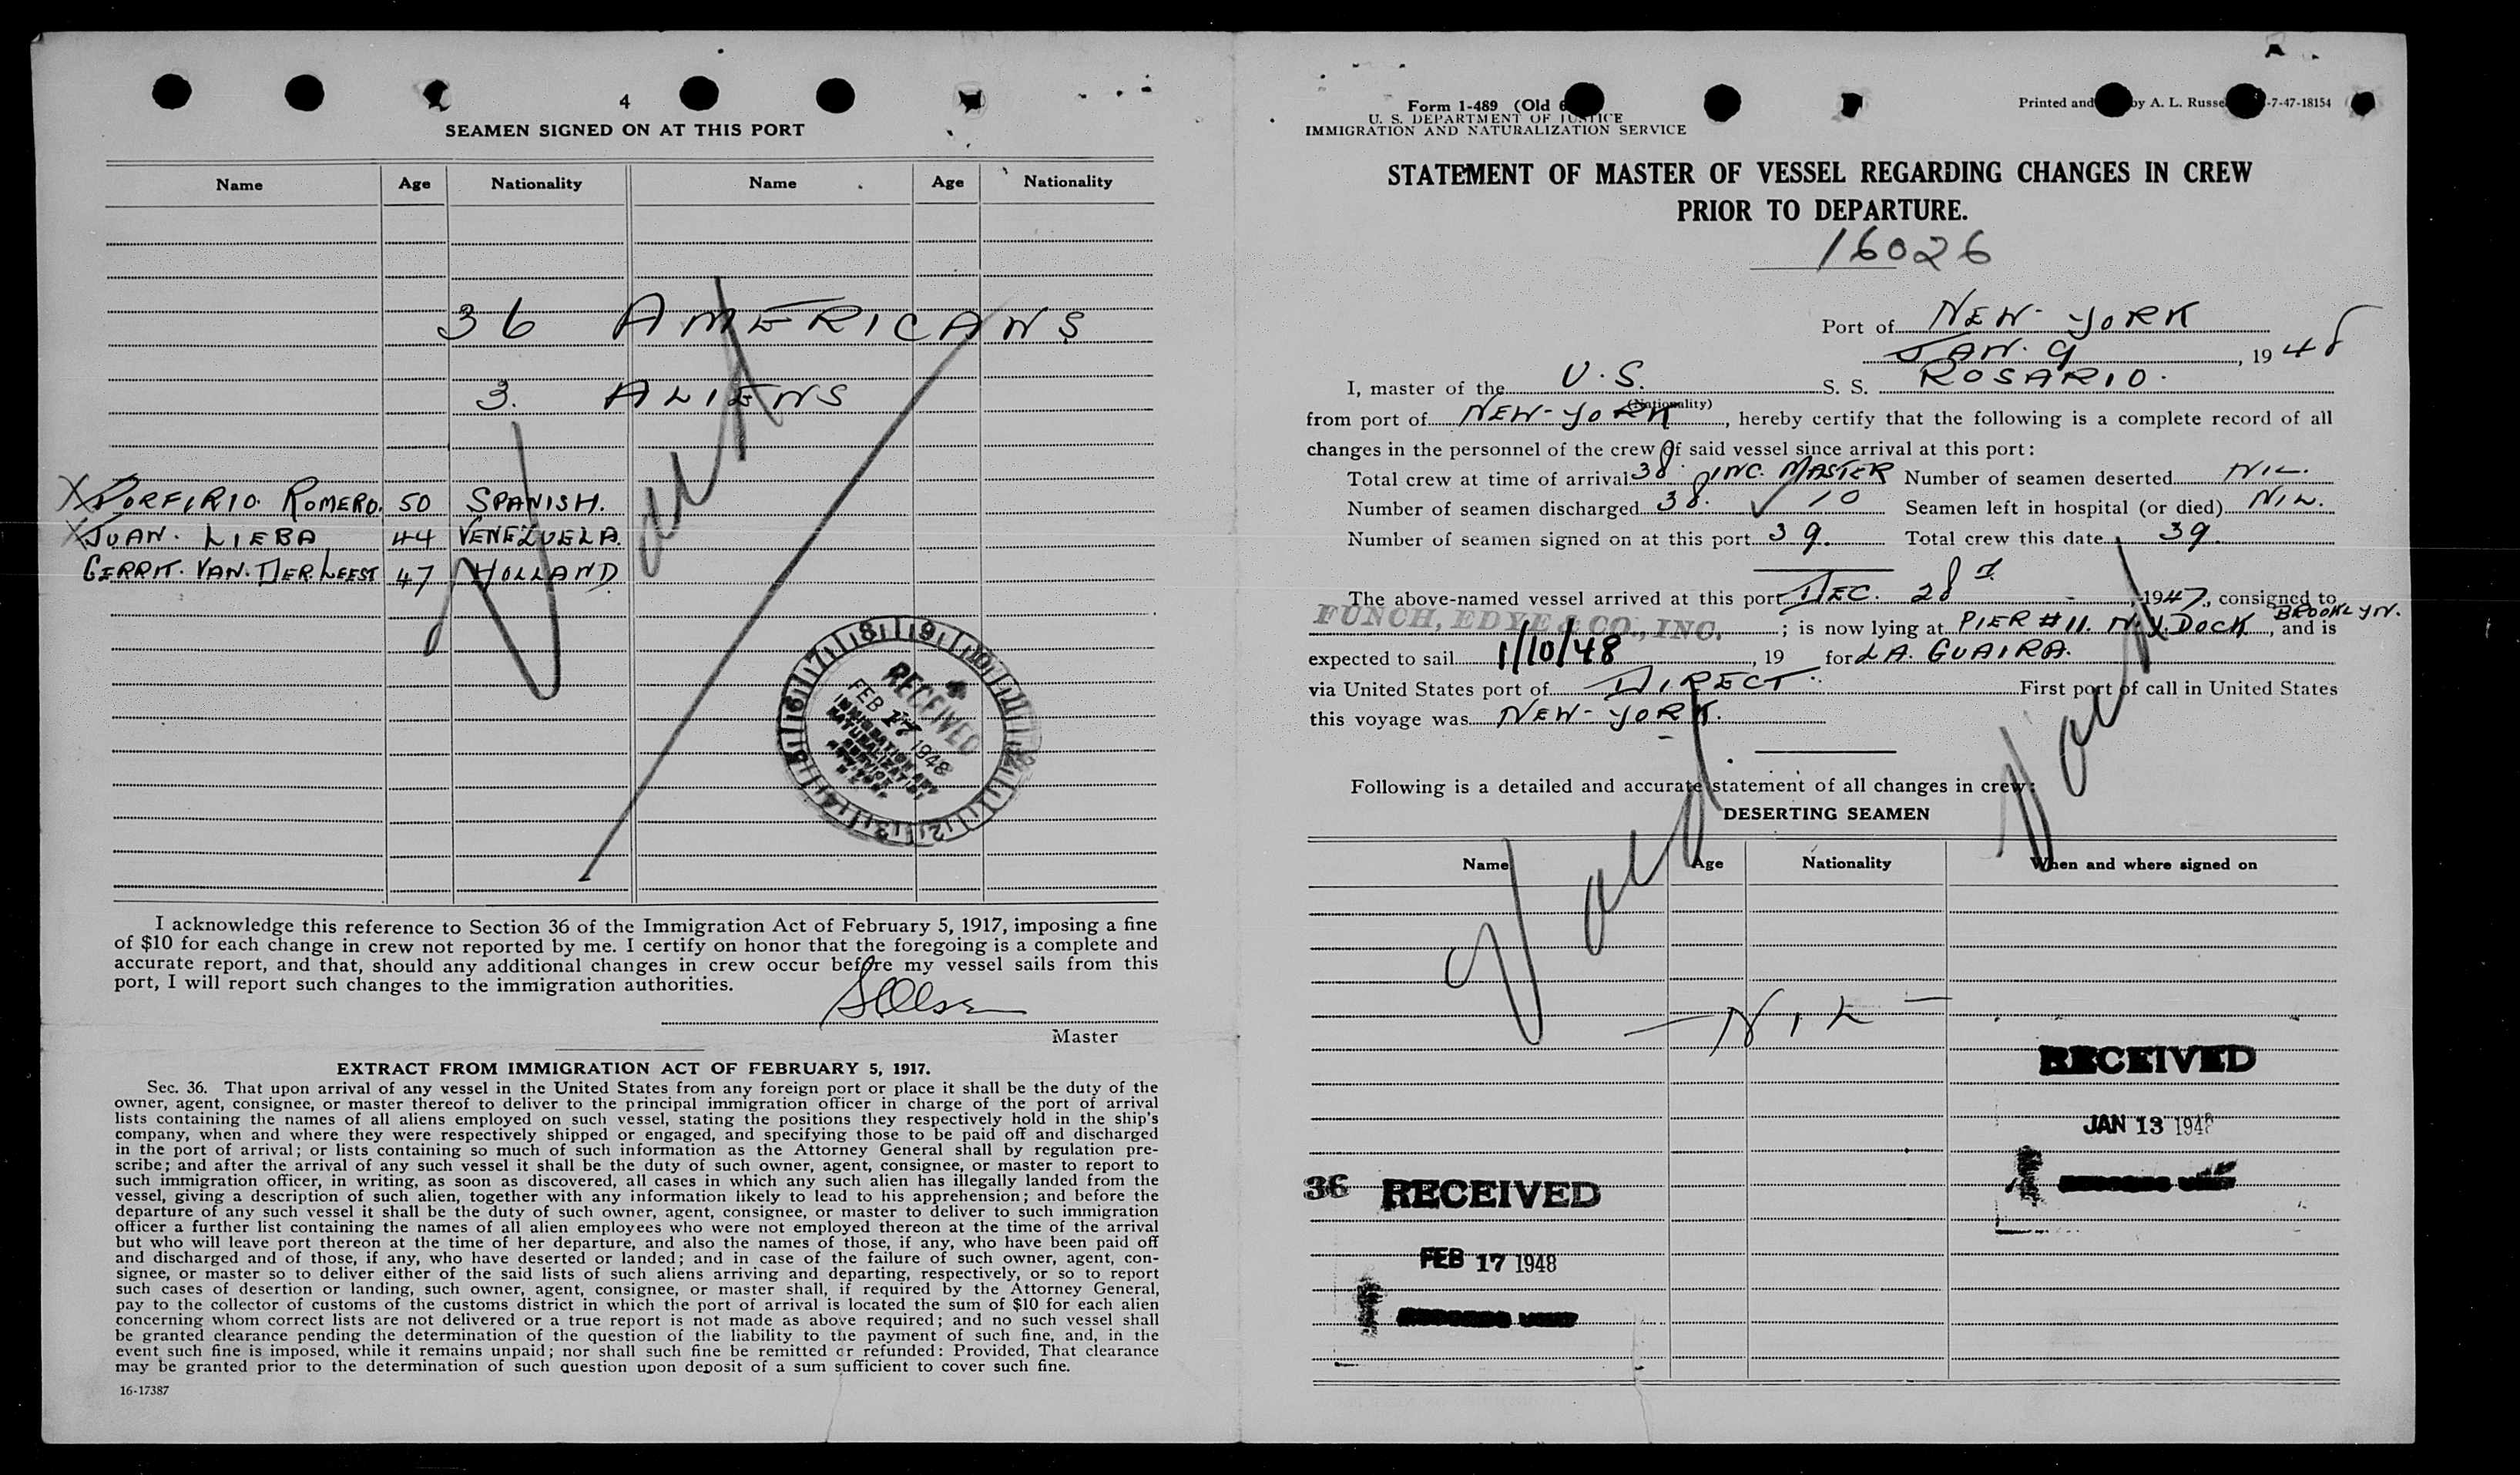 4
SEAMEN SIGNED ON AT THIS PORT
Name Age Nationality Name Age Nationality
36 AMERICANS
3. ALIENS
X PORFIRIO ROMERO. 50 SPANISH.
X JUAN. LIEBA 44 VENEZUELA.
GERRIT. VAN. DER. LEEST 47 HOLLAND
RECEIVED
FEB 17 1948
I acknowledge this reference to Section 36 of the Immigration Act of February 5, 1917, imposing a fine
of $10 for each change in crew not reported by me. I certify on honor that the foregoing is a complete and
accurate report, and that, should any additional changes in crew occur before my vessel sails from this
port, I will report such changes to the immigration authorities.
Master
EXTRACT FROM IMMIGRATION ACT OF FEBRUARY 5, 1917.
Sec. 36. That upon arrival of any vessel in the United States from any foreign port or place it shall be the duty of the
owner, agent, consignee, or master thereof to deliver to the principal immigration officer in charge of the port of arrival
lists containing the names of all aliens employed on such vessel, stating the positions they respectively hold in the ship's
company, when and where they were respectively shipped or engaged, and specifying those to be paid off and discharged
in the port of arrival; or lists containing so much of such information as the Attorney General shall by regulation pre-
scribe; and after the arrival of any such vessel it shall be the duty of such owner, agent, consignee, or master to report to
such immigration officer, in writing, as soon as discovered, all cases in which any such alien has illegally landed from the
vessel, giving a description of such alien, together with any information likely to lead to his apprehension; and before the
departure of any such vessel it shall be the duty of such owner, agent, consignee, or master to deliver to such immigration
officer a further list containing the names of all alien employees who were not employed thereon at the time of the arrival
but who will leave port thereon at the time of her departure, and also the names of those, if any, who have been paid off
and discharged and of those, if any, who have deserted or landed; and in case of the failure of such owner, agent, con-
signee, or master so to deliver either of the said lists of such aliens arriving and departing, respectively, or so to report
such cases of desertion or landing, such owner, agent, consignee, or master shall, if required by the Attorney General,
pay to the collector of customs of the customs district in which the port of arrival is located the sum of $10 for each alien
concerning whom correct lists are not delivered or a true report is not made as above required; and no such vessel shall
be granted clearance pending the determination of the question of the liability to the payment of such fine, and, in the
event such fine is imposed, while it remains unpaid; nor shall such fine be remitted or refunded: Provided, That clearance
may be granted prior to the determination of such question upon deposit of a sum sufficient to cover such fine.
16-17387
Form 1-489 (Old
Printed and by A. L. Russe -7-47-18154
U. S. DEPARTMENT OF JUSTICE
IMMIGRATION AND NATURALIZATION SERVICE
STATEMENT OF MASTER OF VESSEL REGARDING CHANGES IN CREW
PRIOR TO DEPARTURE.
16026
Port of NEW-YORK
JAN. 9, 1948
I, master of the U.S. S. S. ROSARIO.
(Nationality)
from port of NEW-YORK, hereby certify that the following is a complete record of all
changes in the personnel of the crew of said vessel since arrival at this port:
Total crew at time of arrival 38. INC. MASTER Number of seamen deserted NIL.
Number of seamen discharged 38. 10 Seamen left in hospital (or died) NIL.
Number of seamen signed on at this port 39. Total crew this date 39.
The above-named vessel arrived at this port DEC. 28, 1947, consigned to
FUNCH, EDYE & CO., INC.; is now lying at PIER # 11. N.Y. DOCK BROOKLYN., and is
expected to sail 1/10/48, 19 for LA. GUAIRA.
via United States port of DIRECT. First port of call in United States
this voyage was NEW-YORK.
Following is a detailed and accurate statement of all changes in crew:
DESERTING SEAMEN
Name Age Nationality When and where signed on
- NIL -
RECEIVED
JAN 13 1948
36 RECEIVED
FEB 17 1948